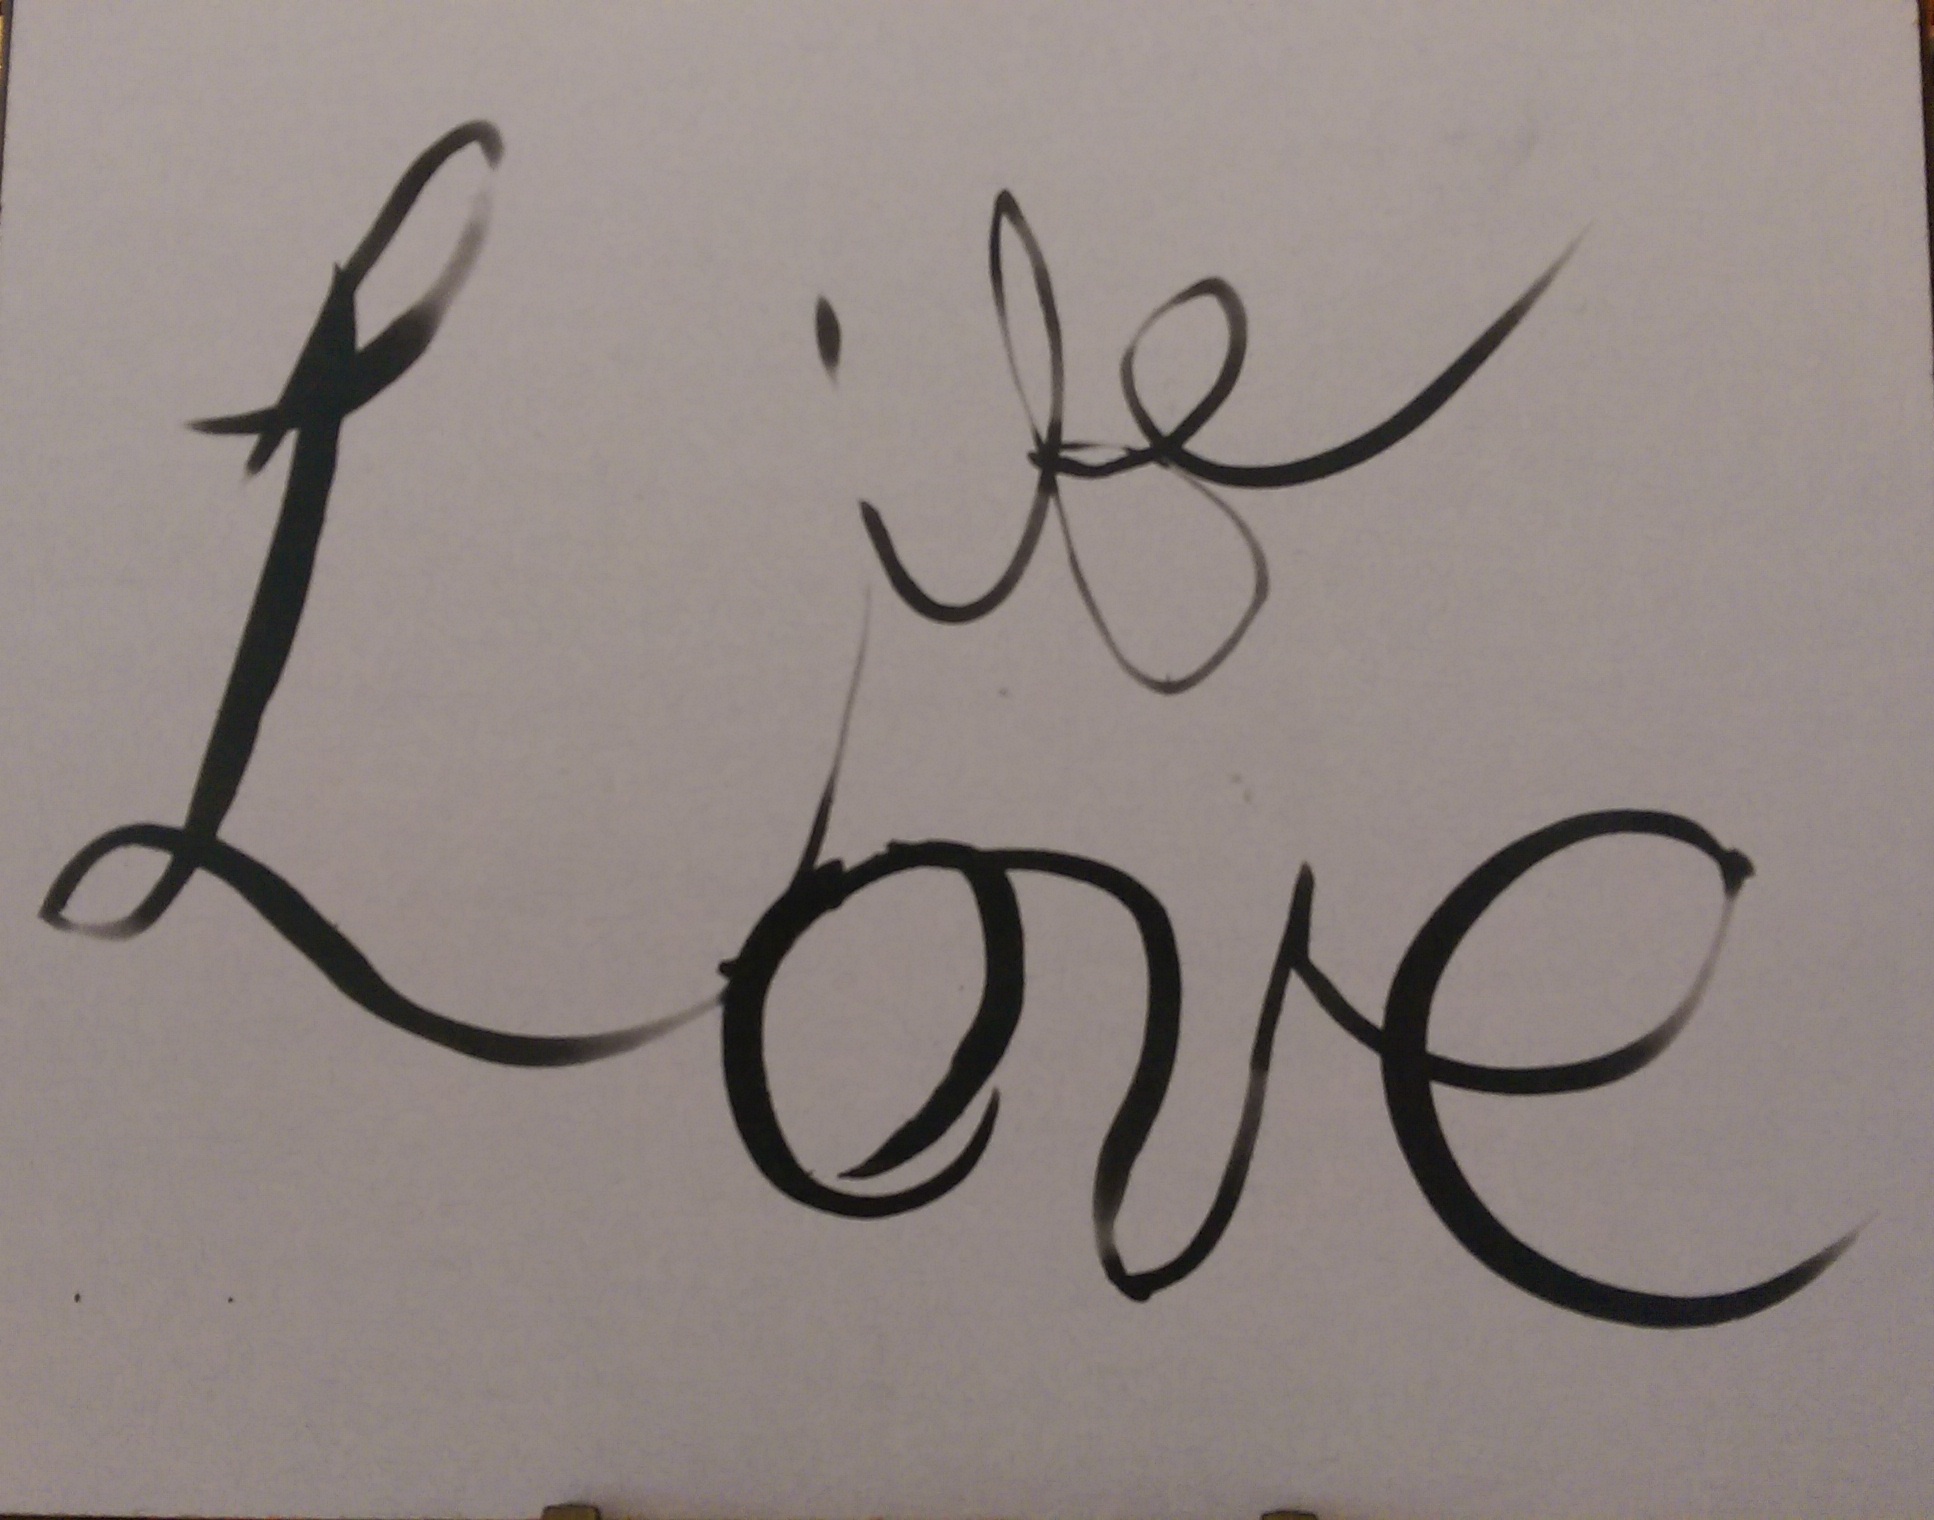 Life
Love